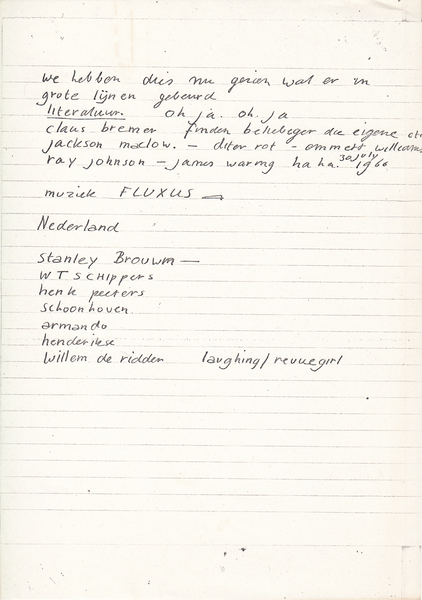 we hebben dus nu gezien wat er in
grote lijnen gebeurd
literatuur. oh ja. oh. ja
claus bremer finden beliebeger die eigene
jackson maclow. - diter rot - emmett williams
30 july
ray johnson - james waring ha ha. 1960
muziek FLUXUS
Nederland
Stanley Brouwn —
W T SCHippers
henk peeters
schoonhoven
armando
henderikse
Willem de ridder laughing/revuegirl